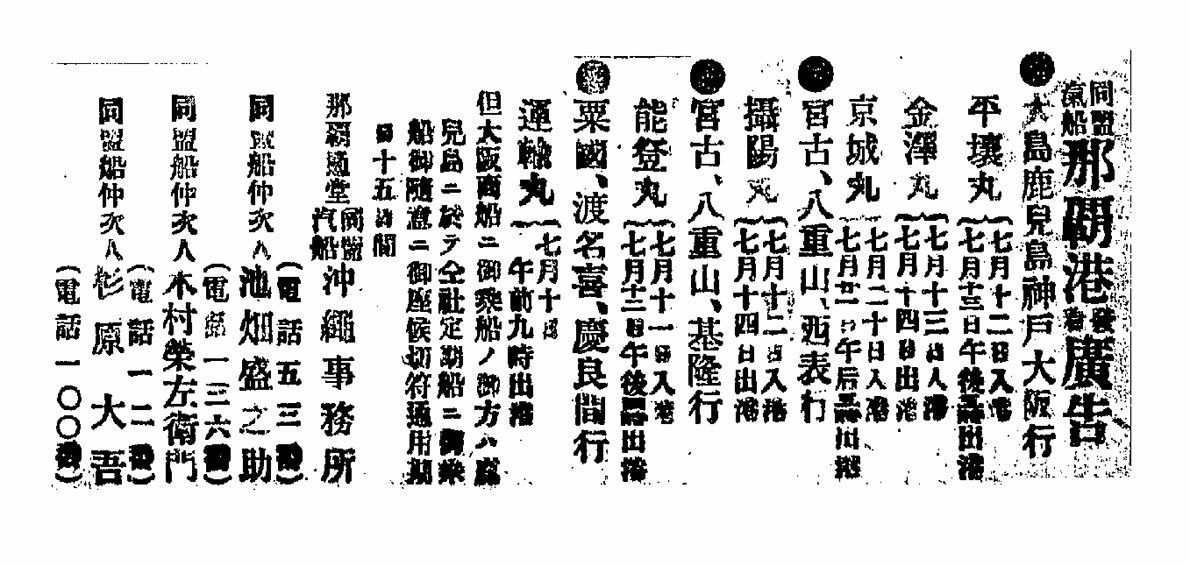 同盟汽船那覇港發着廣告
●大島鹿兒島神戸大阪行
平壤丸
七月十二日入港
七月十三日午後四時出港
金澤丸
七月十三日入港
七月十四日出港
京城丸
七月二十日入港
七月廿一日午后四時出港
●宮古、八重山、西表行
攝陽丸
七月十二日入港
七月十四日出港
●宮古、八重山、基隆行
能登丸
七月十一日入港
七月十二日午後四時出港
●粟國、渡名喜、慶良間行
運輸丸
七月十日
午前九時出港
但大阪商船ニ御乘船ノ御方ハ鹿
兒島ニ於テ仝社定期船ニ御乘
船御隨意ニ御座候切符通用期
日十五日間
那覇通堂
同盟汽船沖繩事務所
(電話五三番)
同盟船仲次人池畑盛之助
(電話一三六番)
同盟船仲次人木村榮左衛門
(電話一二番)
同盟船仲次人杉原大吾
(電話一〇〇番)